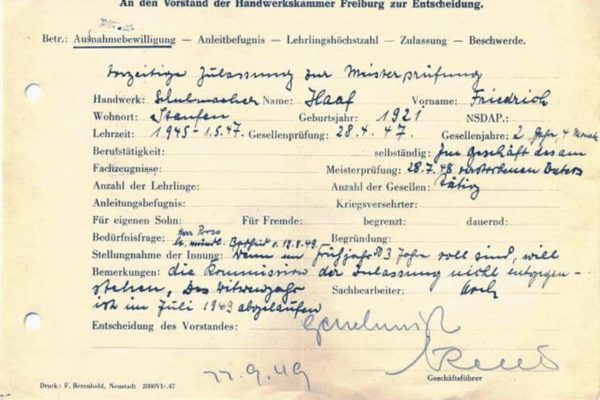 An den Vorstand der Handwerkskammer Freiburg zur Entscheidung.
Betr.: Ausnahmebewilligung — Anleitbefugnis — Lehrlingshöchstzahl — Zulassung — Beschwerde.
Vorzeitige Zulassung zur Meisterprüfung
Handwerk: Schuhmacher Name: Haaf Vorname: Friedrich
Wohnort: Staufen Geburtsjahr: 1921 NSDAP.:
Lehrzeit: 1945 - 1.5.47. Gesellenprüfung: 28.4.47. Gesellenjahre: 2 Jahre, 4 Monate
Berufstätigkeit: selbständig: Im Geschäft des am
Fachzeugnisse: Meisterprüfung: 28.7.48 verstorbenen Vaters
Anzahl der Lehrlinge: Anzahl der Gesellen: tätig
Anleitungsbefugnis: Kriegsversehrter:
Für eigenen Sohn: Für Fremde: begrenzt: dauernd:
Herr
Bedürfnisfrage: Begründung:
Stellungnahme der Innung: Wenn im Frühjahr 3 Jahre voll sind, will
Bemerkungen: die Kommission der Zulassung nicht entgegen-
stehen, Das Witwenjahr Sachbearbeiter:
ist im Juli 1949 abgelaufen
Entscheidung des Vorstandes: Genehmigt
22.9.49
Geschäftsführer
Druck: F. Rezenbold, Neustadt 2000VI/.47